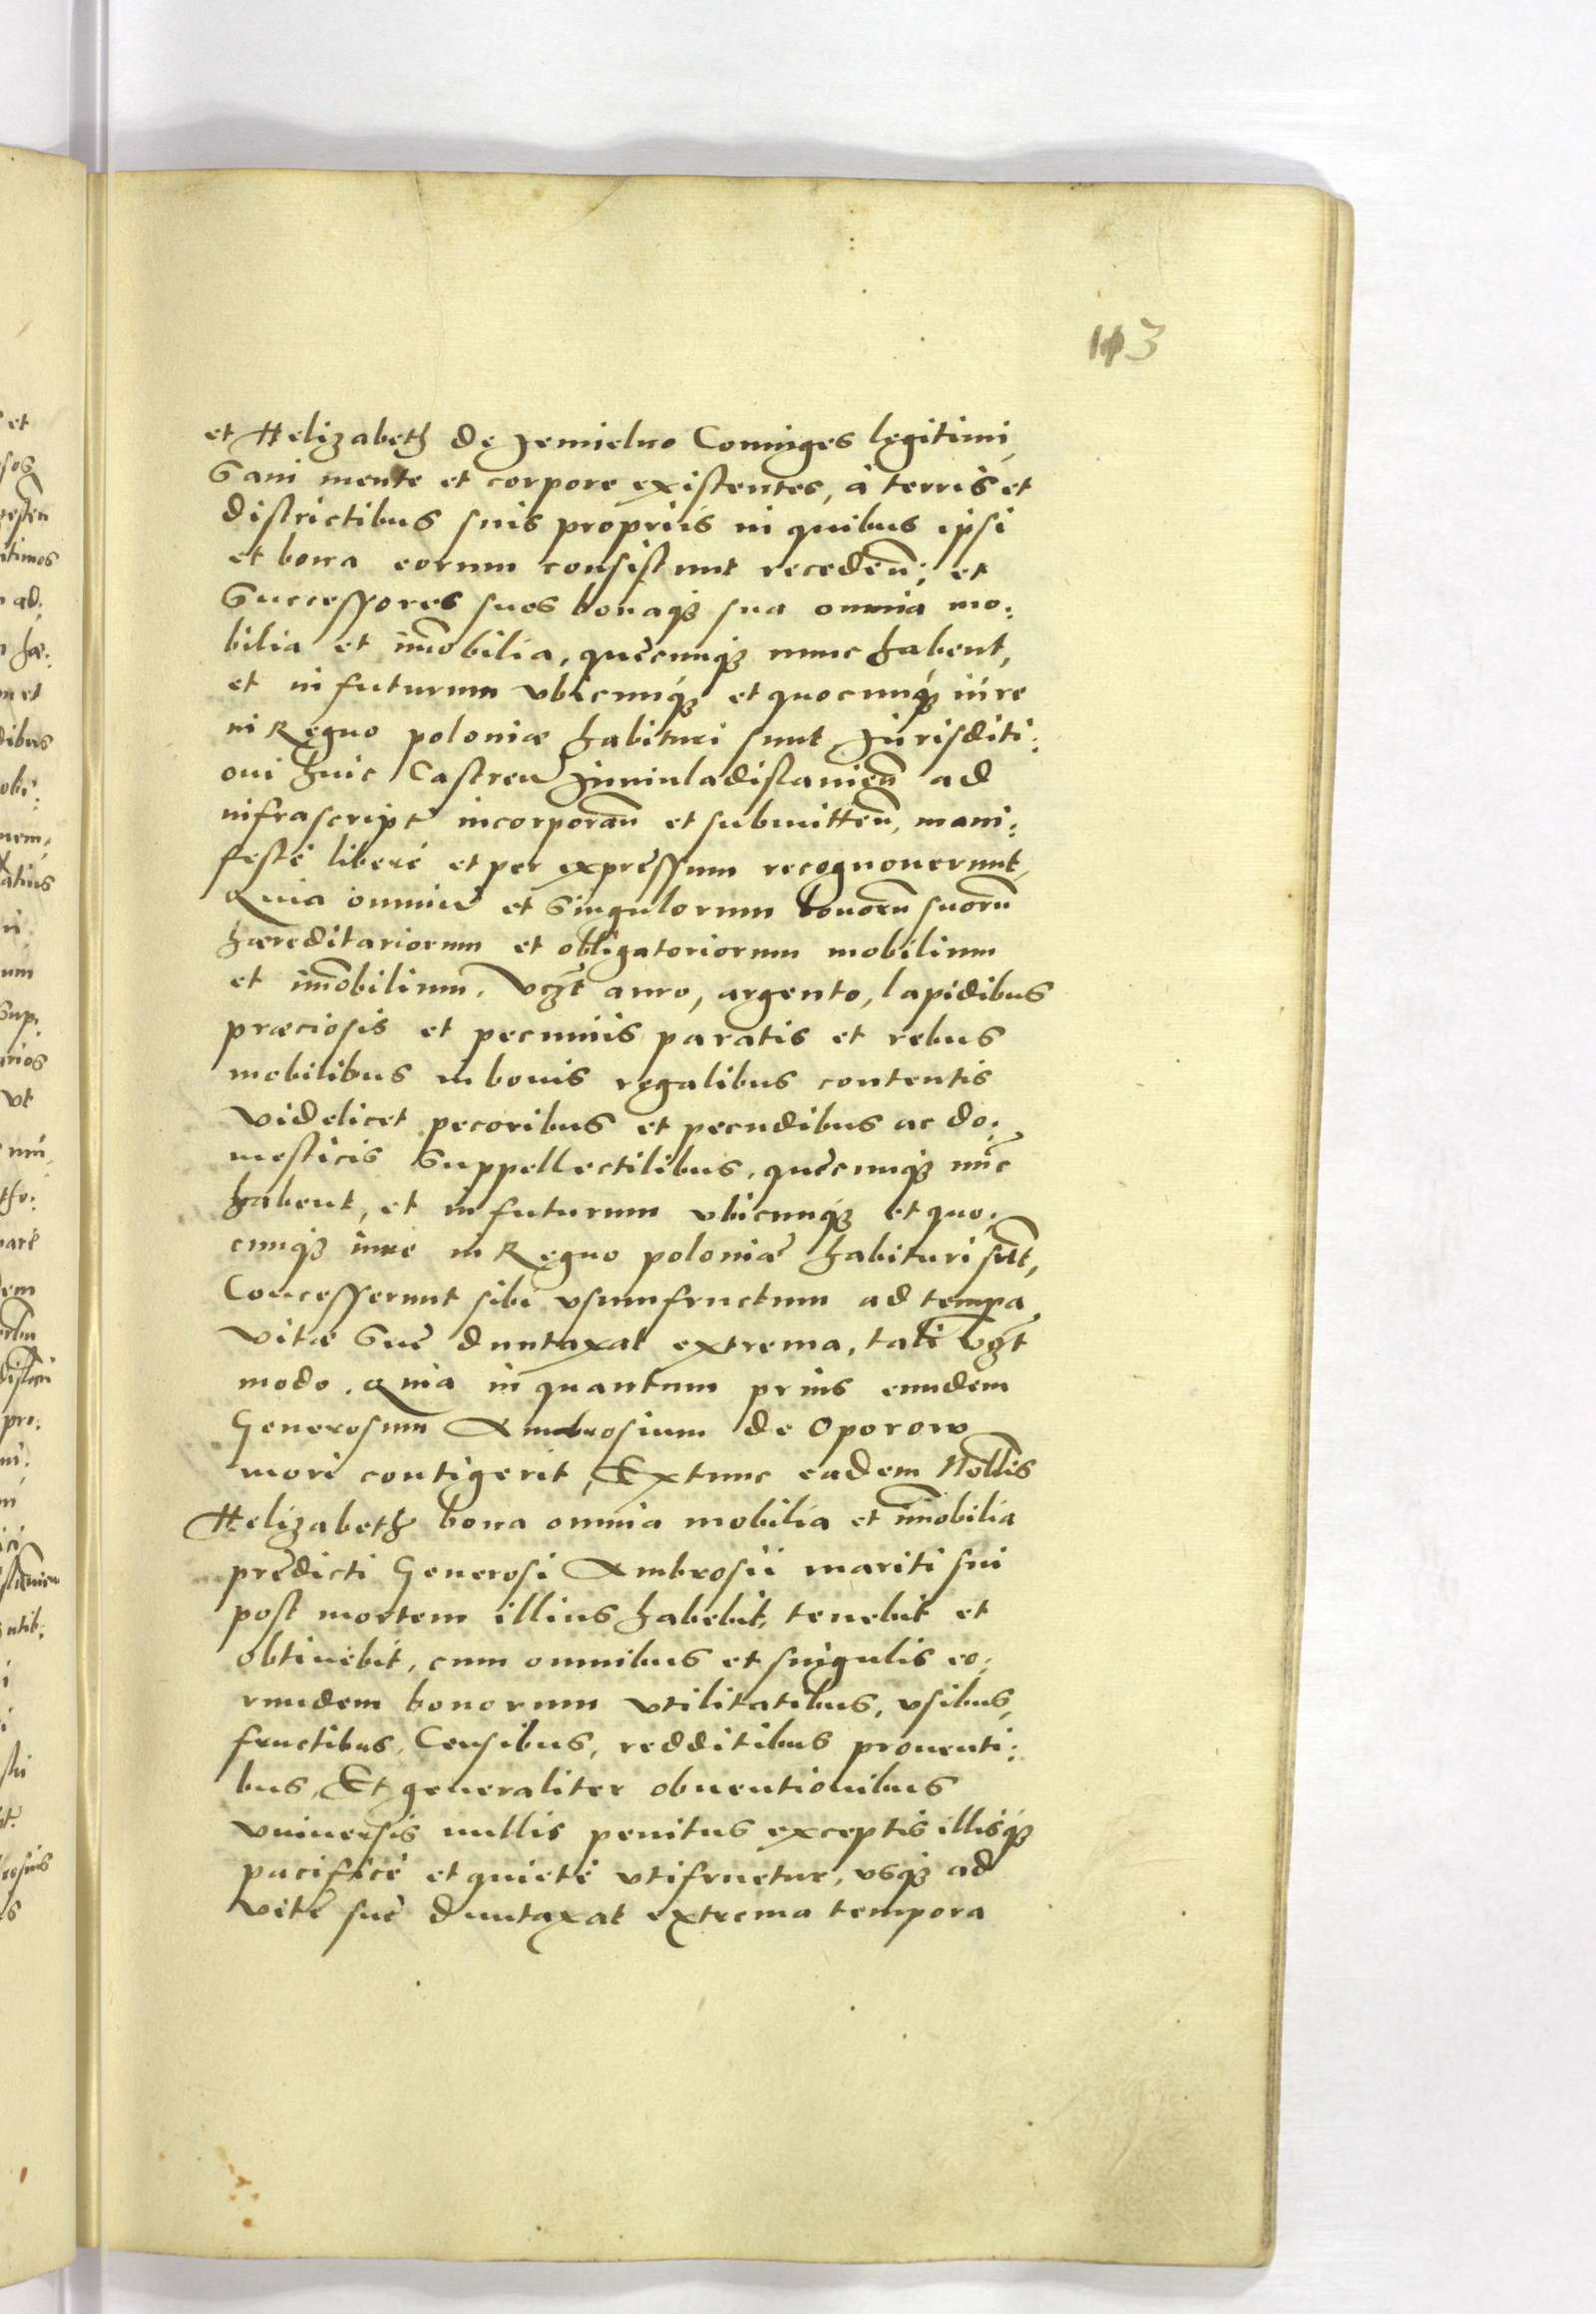 113
et Helizabeth de Jemielno Coniuges legitimi,
Sani mente et corpore existentes, à terris et
districtibus suis proprijs in quibus ipsi
et bona eorum consistunt receden̄; et
Successores suos bonaq₃ sua omnia mo:
bilia et im̄obilia, quęcunq₃ nunc habent,
et in futurum vbicunq₃ et quocunq₃ iúre
in Regno poloniæ habituri sunt Jurisditi:
oni huic Castren̄ Juniuladislauien̄ ad
infrascript̄ incorporan̄ et submitten̄, mani:
festè liberè et per expressum recognouerunt,
Quia omniū et Singulorum bonorū suorū
hæreditariorum et obligatoriorum mobilium
et im̄obilium, vcz̄t auro, argento, lapidibus
præciosis et pecunijs paratis et rebus
mobilibus in bonis regalibus contentis
videlicet pecoribus et pecudibus ac do:
mesticis Suppellectilibus, quęcunq₃ nūc
habent, et in futurum vbicunq₃ et quo:
cunq₃ iure in Regno poloniæ habituri sūt,
Concesserunt sibi vsumfructum ad tempa
vitæ Suę duntaxat extrema, tali vcz̄t
modo. Quia in quantum prius eundem
Generosum Ambrosium de Oporow
mori contigerit, Extunc eadem Nobilis
Helizabeth bona omnia mobilia et im̄obilia
prędicti Generosi Ambrosij mariti sui
post mortem illius habebit, tenebit et
obtinebit, cum omnibus et singulis eo:
rundem bonorum vtilitatibus, vsibus,
fructibus, Censibus, redditibus prouenti:
bus, Et generaliter obuentionibus
vniuersis nullis penitus exceptis illisq₃
pacificè et quietè vtifruetur, vsq₃ ad
vitę suę duntaxat extrema tempora